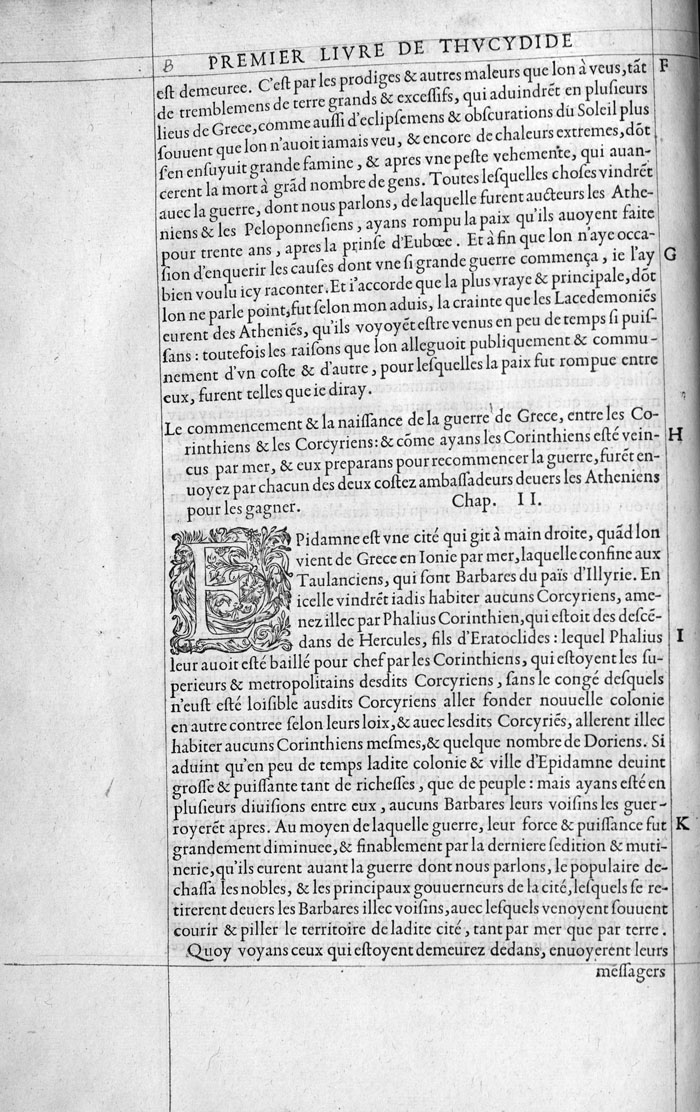 B PREMIER LIVRE DE THVCYDIDE
est demeuree. C'est par les prodiges & autres maleurs que lon à veus, tāt F
de tremblemens de terre grands & excessifs, qui aduindrēt en plusieurs
lieus de Grece, comme aussi d'eclipsemens & obscurations du Soleil plus
souuent que lon n'auoit iamais veu, & encore de chaleurs extremes, dōt
s'en ensuyuit grande famine, & apres vne peste vehemente, qui auan-
cerent la mort à grād nombre de gens. Toutes lesquelles choses vindrēt
auec la guerre, dont nous parlons, de laquelle furent aucteurs les Athe-
niens & les Peloponnesiens, ayans rompu la paix qu'ils auoyent faite
pour trente ans, apres la prinse d'Eubœe. Et à fin que lon n'aye occa-
sion d'enquerir les causes dont vne si grande guerre commença, ie l'ay G
bien voulu icy raconter. Et i'accorde que la plus vraye & principale, dōt
lon ne parle point, fut selon mon aduis, la crainte que les Lacedemoniēs
eurent des Atheniēs, qu'ils voyoyēt estre venus en peu de temps si puis-
sans : toutefois les raisons que lon alleguoit publiquement & commu-
nement d'vn coste & d'autre, pour lesquelles la paix fut rompue entre
eux, furent telles que ie diray.
Le commencement & la naissance de la guerre de Grece, entre les Co-
rinthiens & les Corcyriens: & cōme ayans les Corinthiens esté vein- H
cus par mer, & eux preparans pour recommencer la guerre, furēt en-
uoyez par chacun des deux costez ambassadeurs deuers les Atheniens
pour les gagner. Chap. II.
EPidamne est vne cité qui git à main droite, quād lon
vient de Grece en Ionie par mer, laquelle confine aux
Taulanciens, qui sont Barbares du païs d'Illyrie. En
icelle vindrēt iadis habiter aucuns Corcyriens, ame-
nez illec par Phalius Corinthien, qui estoit des descē-
dans de Hercules, fils d'Eratoclides : lequel Phalius I
leur auoit esté baillé pour chef par les Corinthiens, qui estoyent les su-
perieurs & metropolitains desdits Corcyriens, sans le congé desquels
n'eust esté loisible ausdits Corcyriens aller fonder nouuelle colonie
en autre contree selon leurs loix, & auec lesdits Corcyriēs, allerent illec
habiter aucuns Corinthiens mesmes, & quelque nombre de Doriens. Si
aduint qu'en peu de temps ladite colonie & ville d'Epidamne deuint
grosse & puissante tant de richesses, que de peuple : mais ayans esté en
plusieurs diuisions entre eux, aucuns Barbares leurs voisins les guer-
royerēt apres. Au moyen de laquelle guerre, leur force & puissance fut K
grandement diminuee, & finablement par la derniere sedition & muti-
nerie, qu'ils eurent auant la guerre dont nous parlons, le populaire de-
chassa les nobles, & les principaux gouuerneurs de la cité, lesquels se re-
tirerent deuers les Barbares illec voisins, auec lesquels venoyent souuent
courir & piller le territoire de ladite cité, tant par mer que par terre.
Quoy voyans ceux qui estoyent demeurez dedans, enuoyerent leurs
messagers